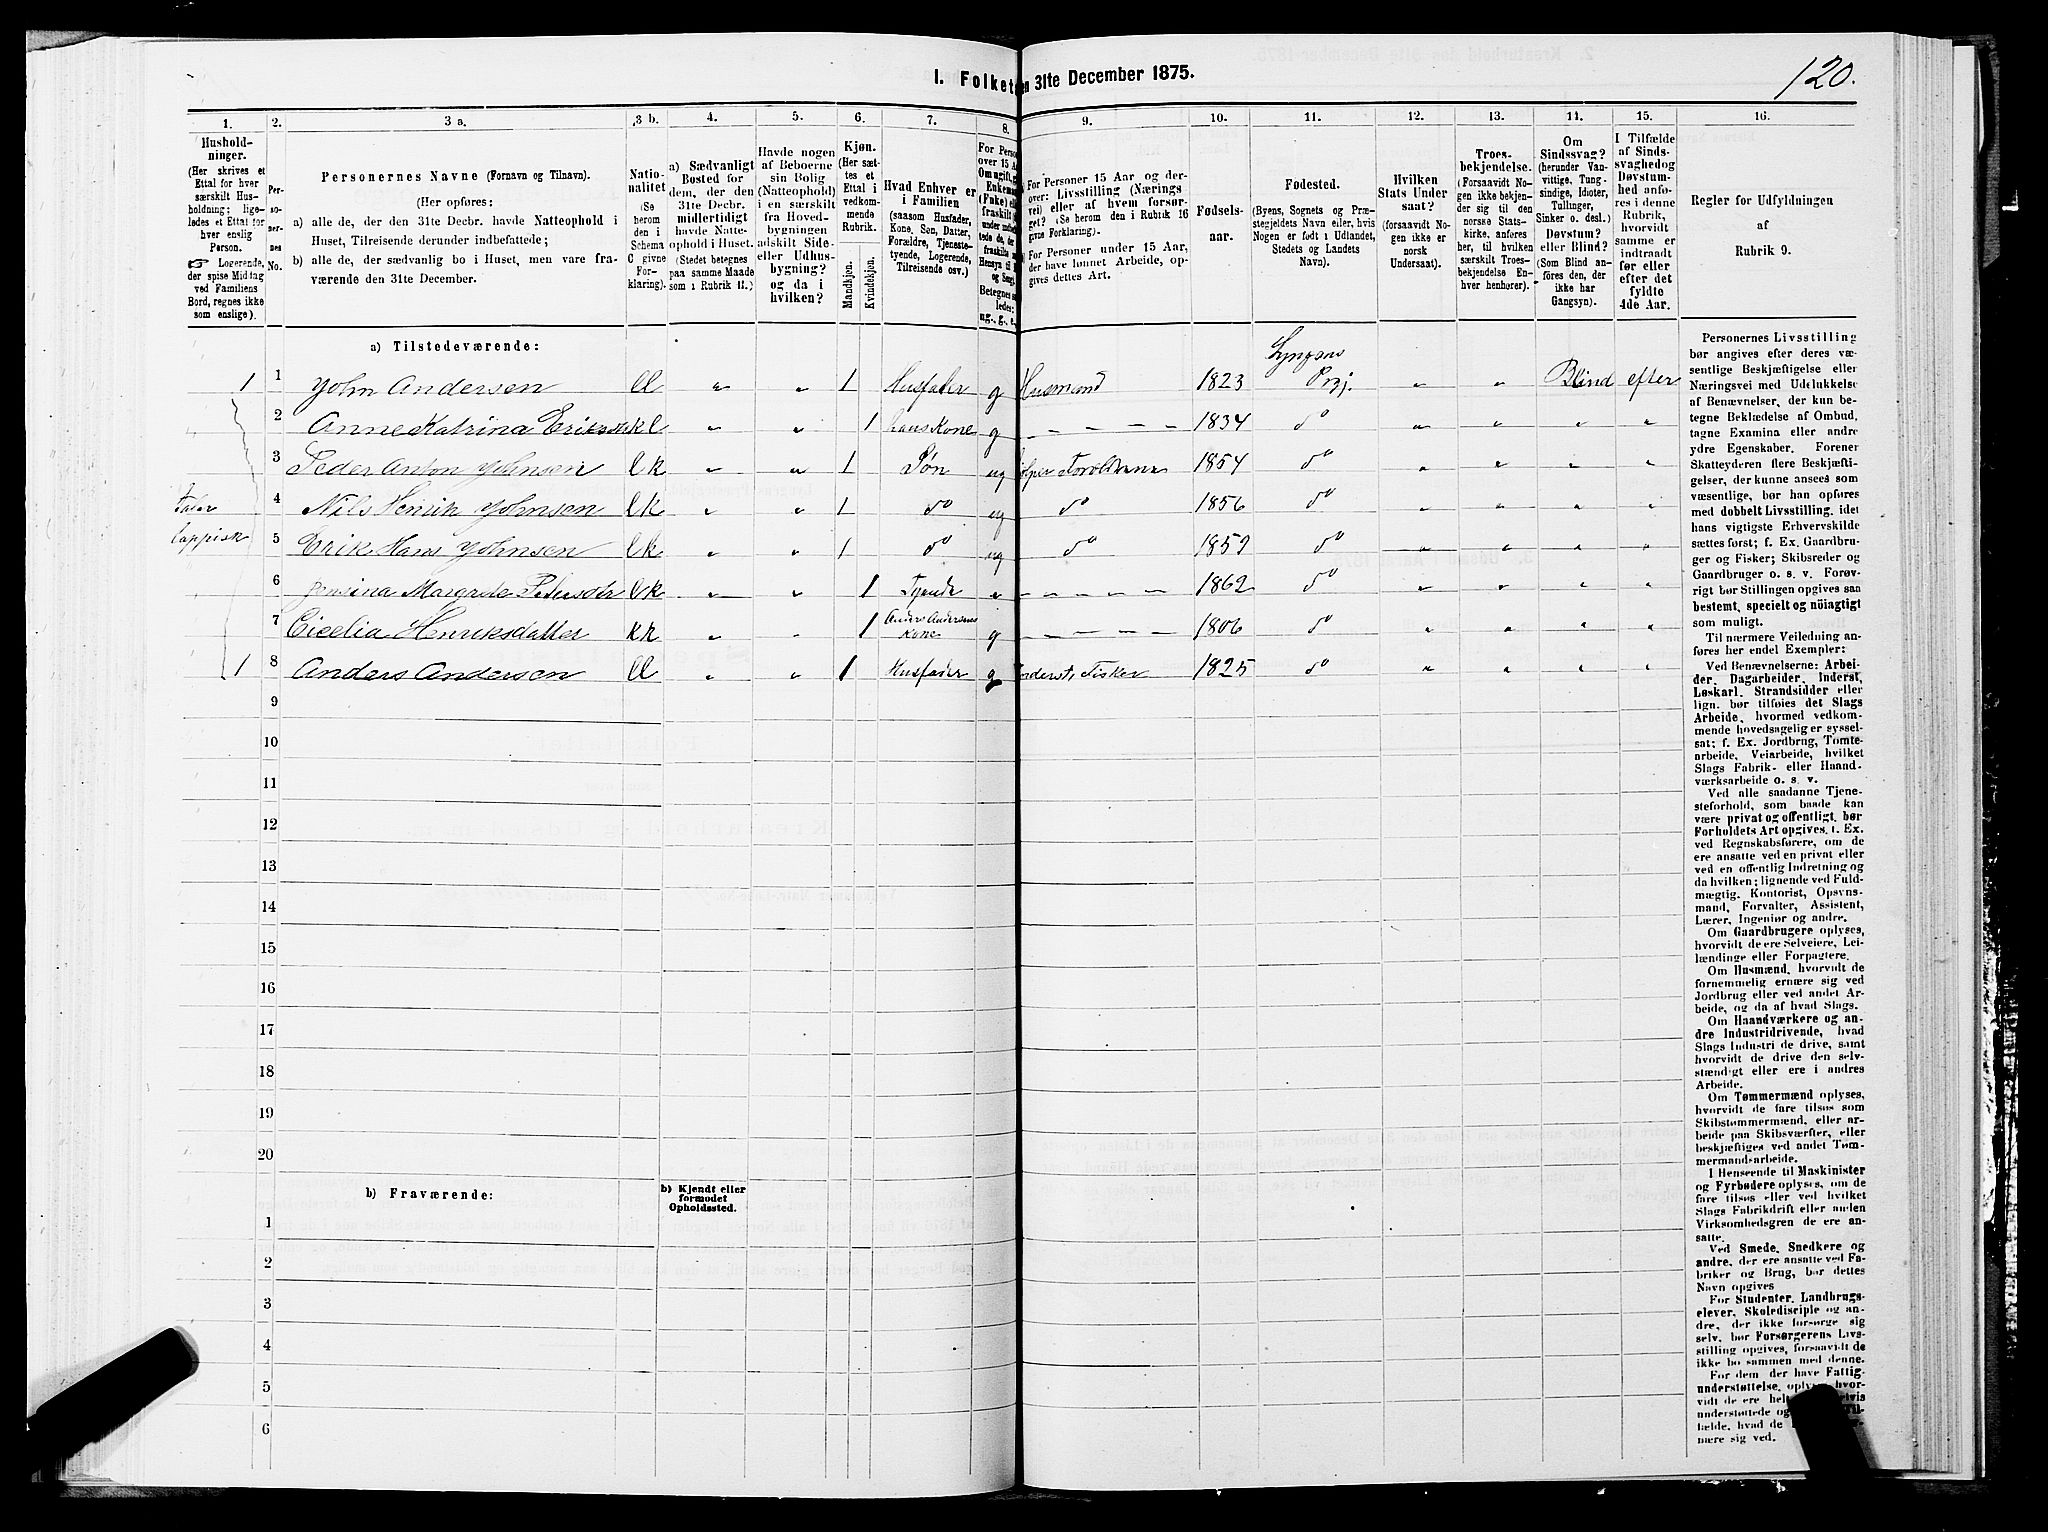 I. Folket en 31te December 1875.
120.
1.
Hushold-
ninger.
(Her skrives et
Ettal for hver
særskilt Hus-
holdning; lige-
ledes et Ettal for
hver enslig
Person.
☞ Logerende,
der spise Middag
ved Familiens
Bord, regnes ikke
som enslige).
2.
Per-
so-
ner-
nes
No.
3 a.
Personernes Navne (Fornavn og Tilnavn).
(Her opføres:
a) alle de, der den 31te Decbr. havde Natteophold i
Huset, Tilreisende derunder indbefattede;
b) alle de, der sædvanlig bo i Huset, men vare fra-
værende den 31te December.
3 b.
Natio-
nalitet
(Se
herom
den i
Schema
C givne
For-
klaring).
4.
a) Sædvanligt
Bosted for
dem, der den
31te Decbr.
midlertidigt
havde Natte-
ophold i Huset.
(Stedet betegnes
paa samme Maade
som i Rubrik 11.)
5.
Havde nogen
af Beboerne
sin Bolig
(Natteophold)
i en særskilt
fra Hoved-
bygningen
adskilt Side-
eller Udhus-
bygning?
og da i
hvilken?
6.
Kjøn.
(Her sæt-
tes et
Ettal i
vedkom-
mende
Rubrik.
Mandkjøn.
Kvindekjøn.
7.
Hvad Enhver er
i Familien
(saasom Husfader,
Kone, Søn, Datter,
Forældre, Tjeneste-
tyende, Logerende,
Tilreisende osv.)
8.
For Perso
over 15 Aa
Om ugift, g
Enkema
(Fnke) el
fraskilt
Hensyn til
og Seng.
Betegnes sa
ledes:
ug., g., e.,
9.
For Personer 15 Aar og der-
over: Livsstilling (Nærings
vei) eller af hvem forsør-
get? (Se herom den i Rubrik 16
givne Forklaring.)
For Personer under 15 Aar,
der have lønnet Arbeide, op-
gives dettes Art.
10.
Fødsels-
aar.
11.
Fødested.
(Byens, Sognets og Præ-
stegjeldets Navn eller, hvis
Nogen er født i Udlandet,
Stedets og Landets
Navn).
12.
Hvilken
Stats Under
saat?
(forsaavidt No-
gen ikke er
norsk
Undersaat).
13.
Troes-
bekjendelse.
(Forsaavidt No-
gen ikke bekjen-
der sig til den
norske Stats-
kirke, anføres
her, til hvilken
særskilt Troes-
bekjendelse En-
hver henhører).
14.
Om
Sindssvag?
(herunder Van-
vittige, Tung-
sindige, Idioter,
Tullinger,
Sinker o. desl.)
Døvstum?
eller Blind?
(Som Blind an-
føres den, der
ikke har
Gangsyn).
15.
I Tilfælde
af Sinds-
svaghed og
Døvstum-
hed anfø-
res i denne
Rubrik,
hvorvidt
samme er
indtraadt
før eller
efter det
fyldte
4de Aar.
16.
Regler for Udfyldningen
af
Rubrik 9.
a) Tilstedeværende:
1 1 John Andersen ll " " 1 Husfader g Husmand 1823 Lyngens Prgj. " " Blind efter
2 Anne Katrina kl " " 1 hans Kone g — — — 1834 do " " " "
3 Peder Anton Johnsen lk " " 1 Søn ug Forældrene 1854 do " " " "
4 Nils Henrik Johnsen lk " " 1 do ug do 1856 do " " " "
Taler
lappisk
5 Erik Hans Johnsen lk " " 1 do ug do 1859 do " " " "
6 Jensina Margrete lk " " 1 Tjende " — — — 1862 do " " " "
7 Cicelia Henriksdatter kk " " 1 Anders Andersens Kone g — — — 1806 do " " " "
1 8 Anders Andersen ll " " 1 Husfader g Inderst, Fisker 1825 do " " " "
9
10
11
12
13
14
15
16
17
18
19
20
b) Fraværende:
b) Kjendt eller
formodet
Opholdssted.
1
2
3
4
5
6
Personernes Livsstilling
bør angives efter deres væ-
sentlige Beskjæftigelse eller
Næringsvei med Udelukkelse
af Benævnelser, der kun be-
tegne Beklædelse af Ombud,
tagne Examina eller andre
ydre Egenskaber. Forener
Skatteyderen flere Beskjæfti-
gelser, der kunne ansees som
væsentlige, bør han opføres
med dobbelt Livsstilling, idet
hans vigtigste Erhvervskilde
sættes først; f. Ex. Gaardbru-
ger og Fisker; Skibsreder og
Gaardbruger o. s. v. Forøv-
rigt bør Stillingen opgives saa
bestemt, specielt og nöiagtigt
som muligt.
Til nærmere Veiledning an-
føres her endel Exempler:
Ved Benævnelserne: Arbei-
der, Dagarbeider, Inderst,
Løskarl, Strandsidder eller
lign. bør tilføies det Slags
Arbeide, hvormed vedkom-
mende hovedsagelig er syssel-
sat; f. Ex. Jordbrug, Tomte-
arbeide, Veiarbeide, hvilket
Slags Fabrik- eller Haand-
værksarbeide o. s. v.
Ved alle saadanne Tjene-
steforhold, som baade kan
være privat og offentligt, bør
Forholdets Art opgives, t. Ex.
ved Regnskabsførere, om de
ere ansatte ved en privat eller
ved en offentlig Indretning og
da hvilken; lignende ved Fuld-
mægtig, Kontorist, Opsyns-
mand, Forvalter, Assistent,
Lærer, Ingeniør og andre.
Om Gaardbrugere oplyses,
hvorvidt de ere Selveiere, Lei-
lændinge eller Forpagtere.
Om Husmænd, hvorvidt de
fornemmelig ernære sig ved
Jordbrug eller ved andet Ar-
beide, og da af hvad Slags.
Om Haandværkere og an-
dre Industridrivende, hvad
Slags Industri de drive, samt
hvorvidt de drive den selv-
stændigt eller ere i andres
Arbeide.
Om Tømmermænd oplyses,
hvorvidt de fare tilsøs som
Skibstømmermænd, eller ar-
beide paa Skibsværfter, eller
beskjæftiges ved andet Tøm-
mermandsarbeide.
I Henseende til Maskinister
og Fyrbødere oplyses, om de
fare tilsøs eller ved hvilket
Slags Fabrikdrift eller anden
Virksomhedsgren de ere an-
satte.
Ved Smede, Snedkere og
andre, der ere ansatte ved Fa-
briker og Brug, bør dettes
Navn opgives
For Studenter, Landbrugs-
elever, Skoledisciple og an-
dre, der ikke forsørge sig
selv, bør Forsørgerens Livs-
stilling opgives, forsaavidt de
ikke bo sammen med denne.
For dem, der have Fattig-
understøttelse, oplyses, hvor-
vidt de ere helt
understøttede og
fælde, hvad de
nære sig ved.